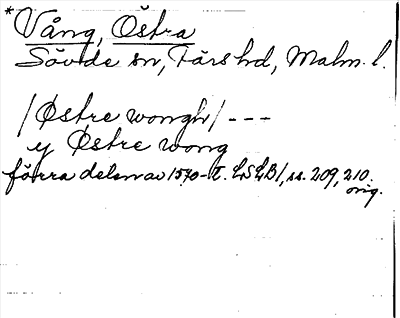 *Vång, Östra
Sövde sn, Färs hd, Malm. l.
/Østre wongh/ ---
y Østre wong
förra delen av 1570-t. LSLB1, ss. 209, 210.
orig.